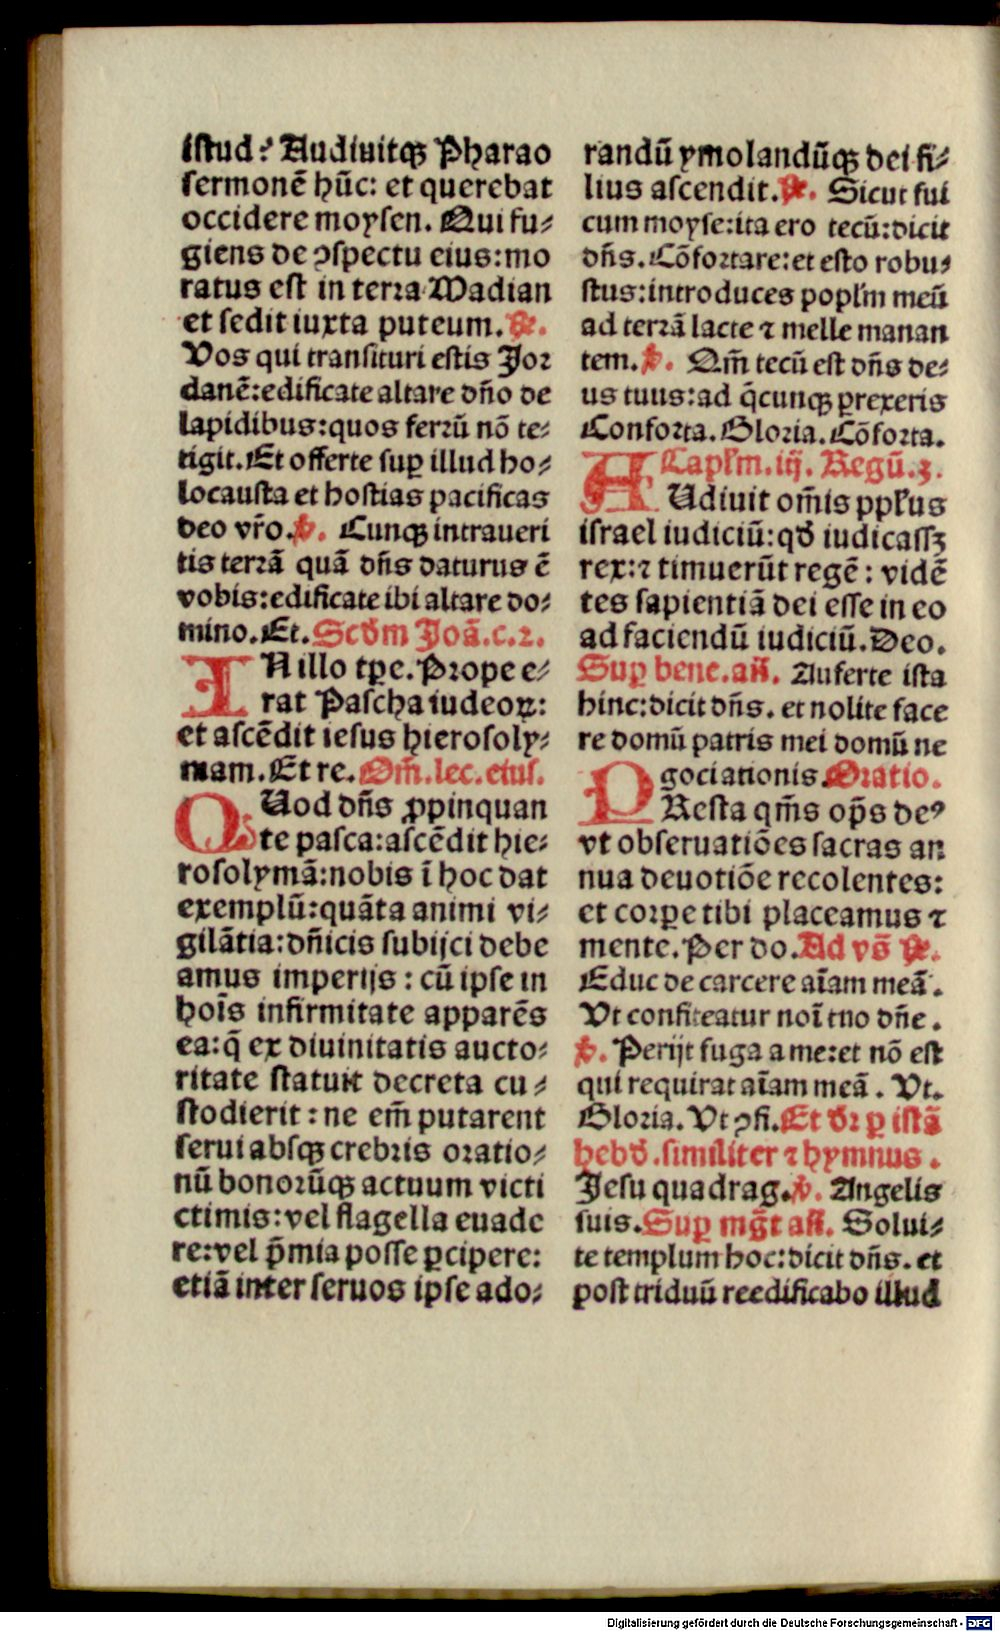 istud? Audiuitqꝫ Pharao
sermonē hūc: et querebat
occidere moysen. Qui fu⸗
giens de ꝯspectu eius: mo
ratus est in terra Madian
et sedit iuxta puteum. ℞.
Vos qui transituri estis Jor
danē: edificate altare dño de
lapidibus: quos ferrū nō te⸗
tigit. Et offerte suꝑ illud ho⸗
locausta et hostias pacificas
deo vr̄o. ℣. Cunqꝫ intraueri
tis terrā quā dñs daturus ē
vobis: edificate ibi altare do⸗
mino. Et. Scd̄m Joā. c. 2.
IN illo tꝑe. Prope e⸗
rat Pascha iudeoꝝ:
et ascēdit iesus hierosoly⸗
mam. Et re. Om̄. lec. eius.
QUod dñs ꝓpinquan
te pasca: ascēdit hie⸗
rosolymā: nobis ī hoc dat
exemplū: quāta animi vi⸗
gilātia: dñicis subijci debe
amus imperijs: cū ipse in
hoīs infirmitate apparēs
ea: q̄ ex diuinitatis aucto⸗
ritate statuit decreta cu⸗
stodierit: ne em̄ putarent
serui absqꝫ crebris oratio⸗
nū bonorūqꝫ actuum victi
ctimis: vel flagella euade
re: vel p̄mia posse ꝑcipere:
etiā inter seruos ipse ado⸗
randū ymolandūqꝫ dei fi⸗
lius ascendit. ℞. Sicut fui
cum moyse: ita ero tecū: dicit
dñs. Cōfortare: et esto robu⸗
stus: introduces popl'm meū
ad terrā lacte ⁊ melle manan
tem. ℣. Qm̄ tecū est dñs de⸗
us tuus: ad q̄cunqꝫ ꝑrexeris
Conforta. Gloria. Cōforta.
Capl'm. iij. Regū. 3.
AUdiuit om̄is ppl'us
israel iudiciū: qd̄ iudicassꝫ
rex: ⁊ timuerūt regē: vidē
tes sapientiā dei esse in eo
ad faciendū iudiciū. Deo.
Suꝑ bene. añ. Auferte ista
hinc: dicit dñs. et nolite face
re domū patris mei domū ne
gociationis. Oratio.
PResta qm̄s op̄s deꝰ
vt obseruatiōes sacras an
nua deuotiōe recolentes:
et corꝑe tibi placeamus ⁊
mente. Per do. Ad vs̄ ℞.
Educ de carcere aīam meā.
Vt confiteatur noī tuo dñe.
℣. Perijt fuga a me: et nō est
qui requirat aīam meā. Vt.
Gloria. Vt ꝯfi. Et dr̄ ꝑ istā
hebd̄. similiter ⁊ hymnus.
Jesu quadrag. ℣. Angelis
suis. Suꝑ mg̃t añ. Solui⸗
te templum hoc: dicit dñs. et
post triduū reedificabo illud
Digitalisierung gefördert durch die Deutsche Forschungsgemeinschaft - DFG